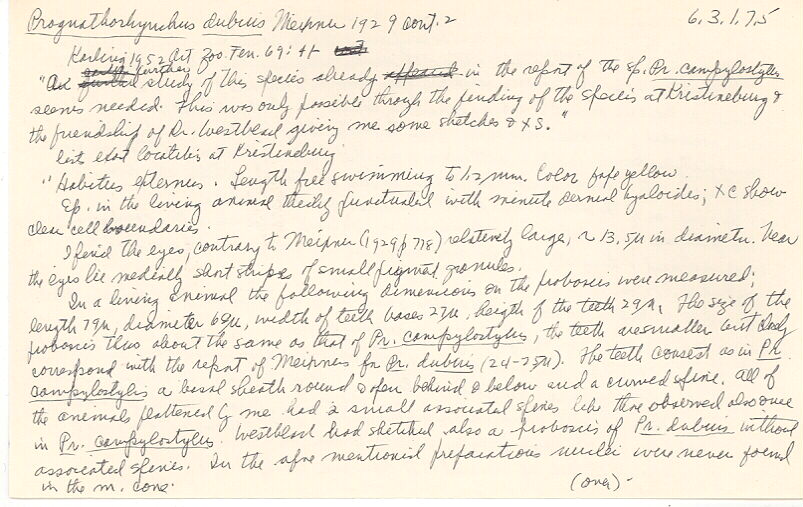 Prognathorhynchus dubius Meixner 1929 cont. 2 6.3.1.7.5
Karling 1952 Act Zoo. Fen. 69: 41
"A further study of this species already in the report of the sp. Pr. campylostylus
seems needed. This was only possible through the finding of the species at Kristineburg &
the friendship of Dr. Westblad giving me some sketches & XS."
lists exact localities at Kristineburg
"Habitus externus. Length free swimming to 1.2 mm. Color pale yellow.
Ep. in the living animal thickly punctuated with minute dermal hyaloides; XC show
clear cell boundaries.
I find the eyes, contrary to Meixner (1929 p 718) relatively large, ~ 13,5µ in diameter. Near
the eyes lie medially short strips of small pigment granules.
In a living animal the following dimensions on the proboscis were measured;
length 79µ, diameter 68µ, width of teeth bases 27µ, heigth of the teeth 29µ. The size of the
proboscis thus about the same as that of Pr. campylostylus, the teeth are smaller but
correspond with the report of Meixners for Pr. dubius (24-25µ). The teeth consist as in Pr.
campylostylus a basal sheath round & open behind & below and a curved spine. All of
the animals flattened by me had 2 small associated spines like those observed also once
in Pr. campylostylus. Westblad had sketched also a proboscis of Pr. dubius without
associated spines. In the afore mentioned preparations nuclei were never found
in the m. cone. (over)-